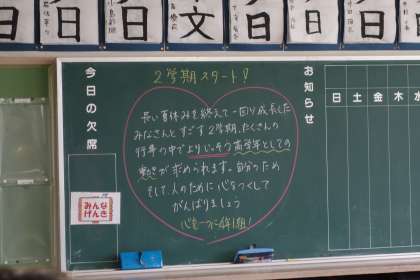 日 日 文 日 日 日
今日の欠席
みんな
げんき
2学期スタート!
長い夏休みを終えて一回り成長した
みなさんとすごす2学期。たくさんの
行事の中でよりいっそう高学年としての
動きが求められます。自分のため
そして、人のために心をつくして
がんばりましょう
心を一つに4年1組!
お知らせ
日 土 金 木 水